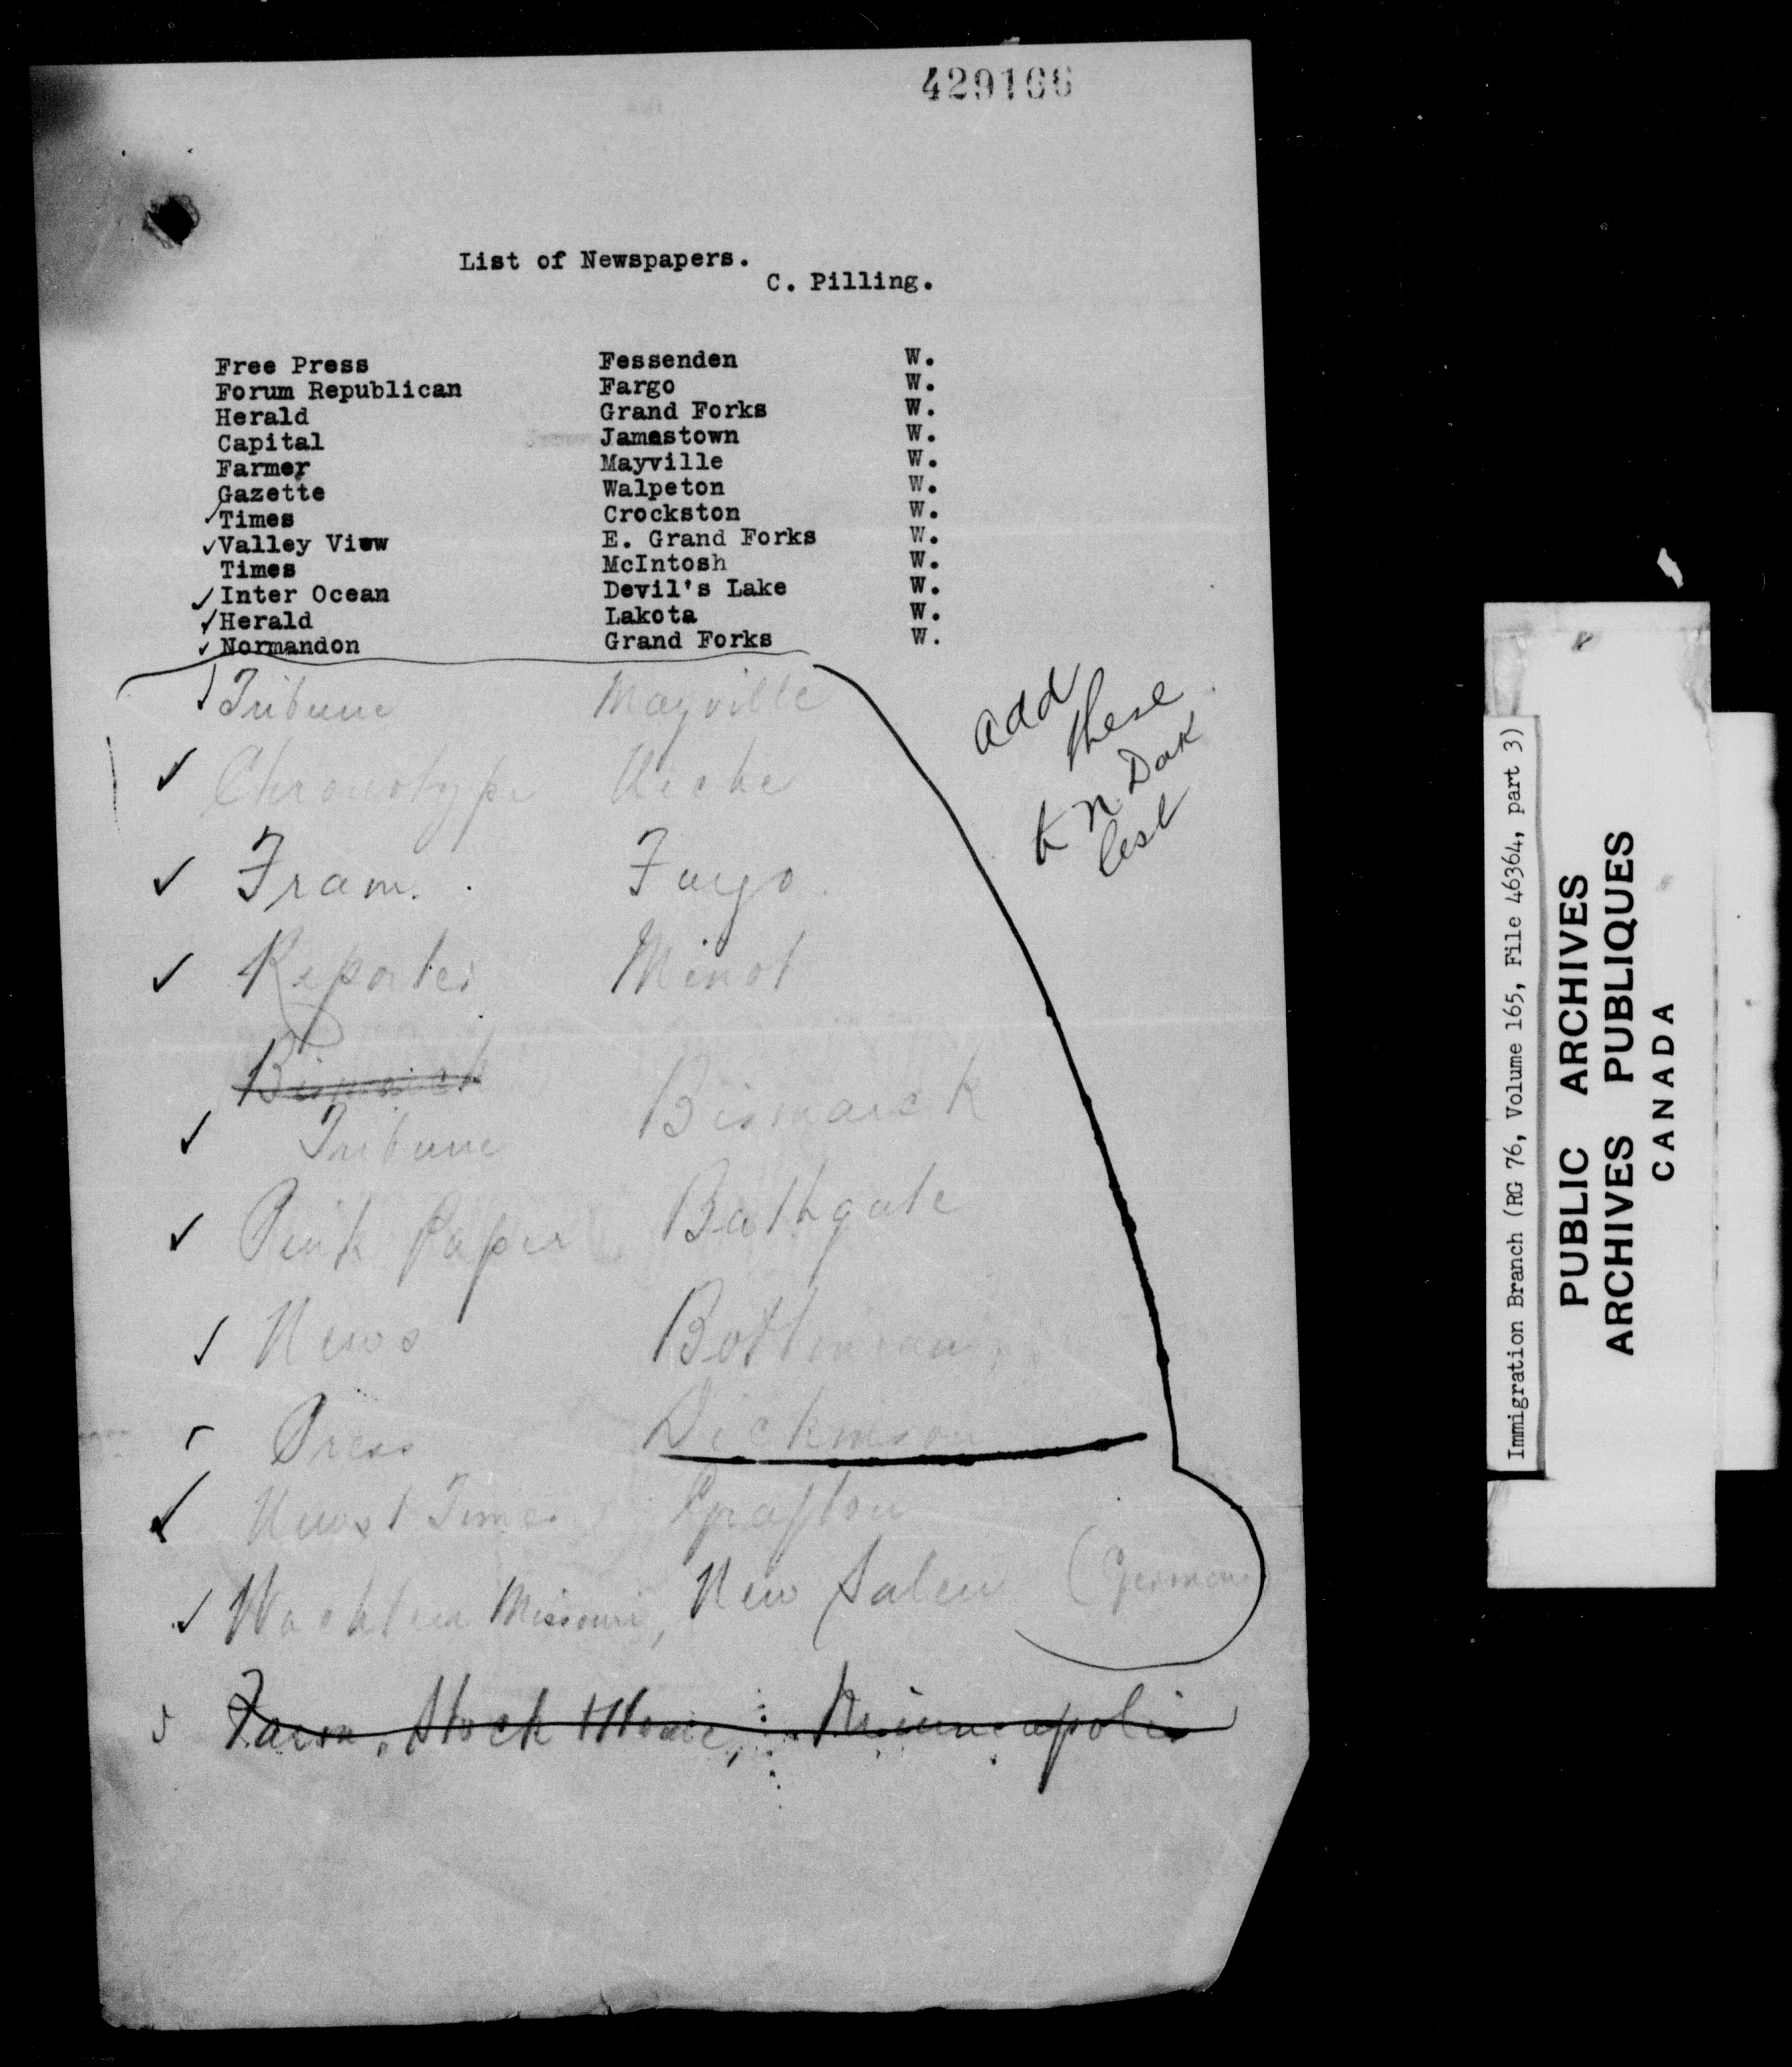 429166
List of Newspapers.
C. Pilling.
Free Press Fessenden W.
Forum Republican Fargo W.
Herald Grand Forks W.
Capital Jamestown W.
Farmer Mayville W.
Gazette Walpeton W.
✓Times Crockston W.
✓Valley View E. Grand Forks W.
Times McIntosh W.
✓Inter Ocean Devil's Lake W.
✓Herald Lakota W.
✓Normandon Grand Forks W.
✓Tribune Mayville
add these to N Dak list
✓ Chronotype
✓ Fram. Fargo.
✓ Reporter Minot
Bismarck
✓ Tribune Bismarck
✓ Pink Paper Bathgate
✓ News Bottineau
Press Dickinson
✓ News & Times Grafton
✓ Missouri, New Salem (German
Farm, Stock & Home, Minneapolis
Immigration Branch (RG 76, Volume 165, File 46364, part 3)
PUBLIC ARCHIVES
ARCHIVES PUBLIQUES
CANADA